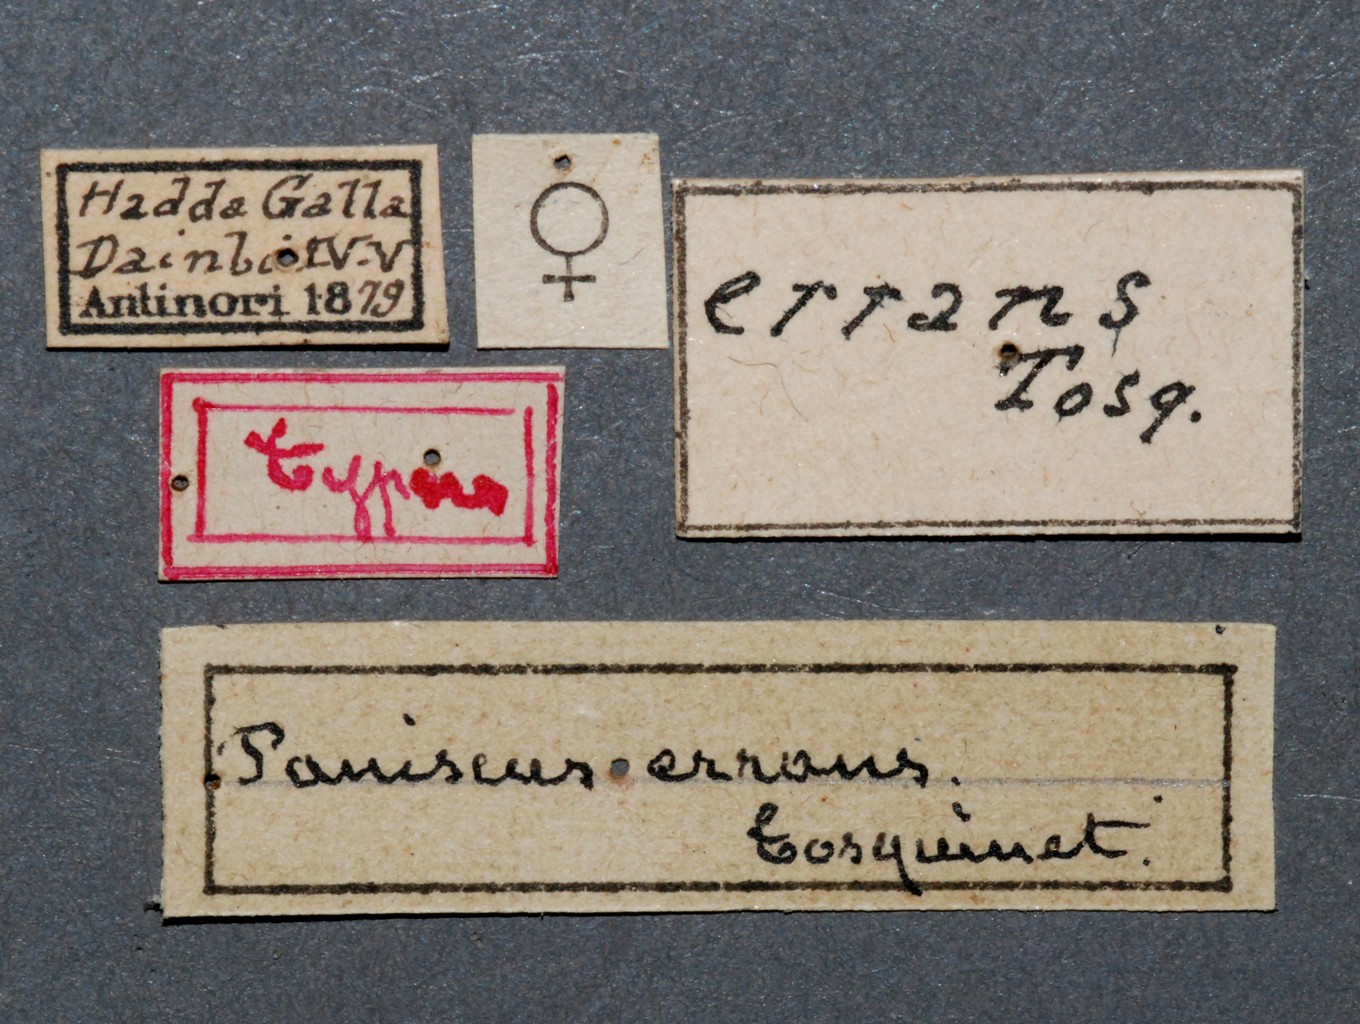 Hadda Galla
IV-V
Antinori 1879
♀
errans
Tosq.
Paniscus errans.
Tosquinet.